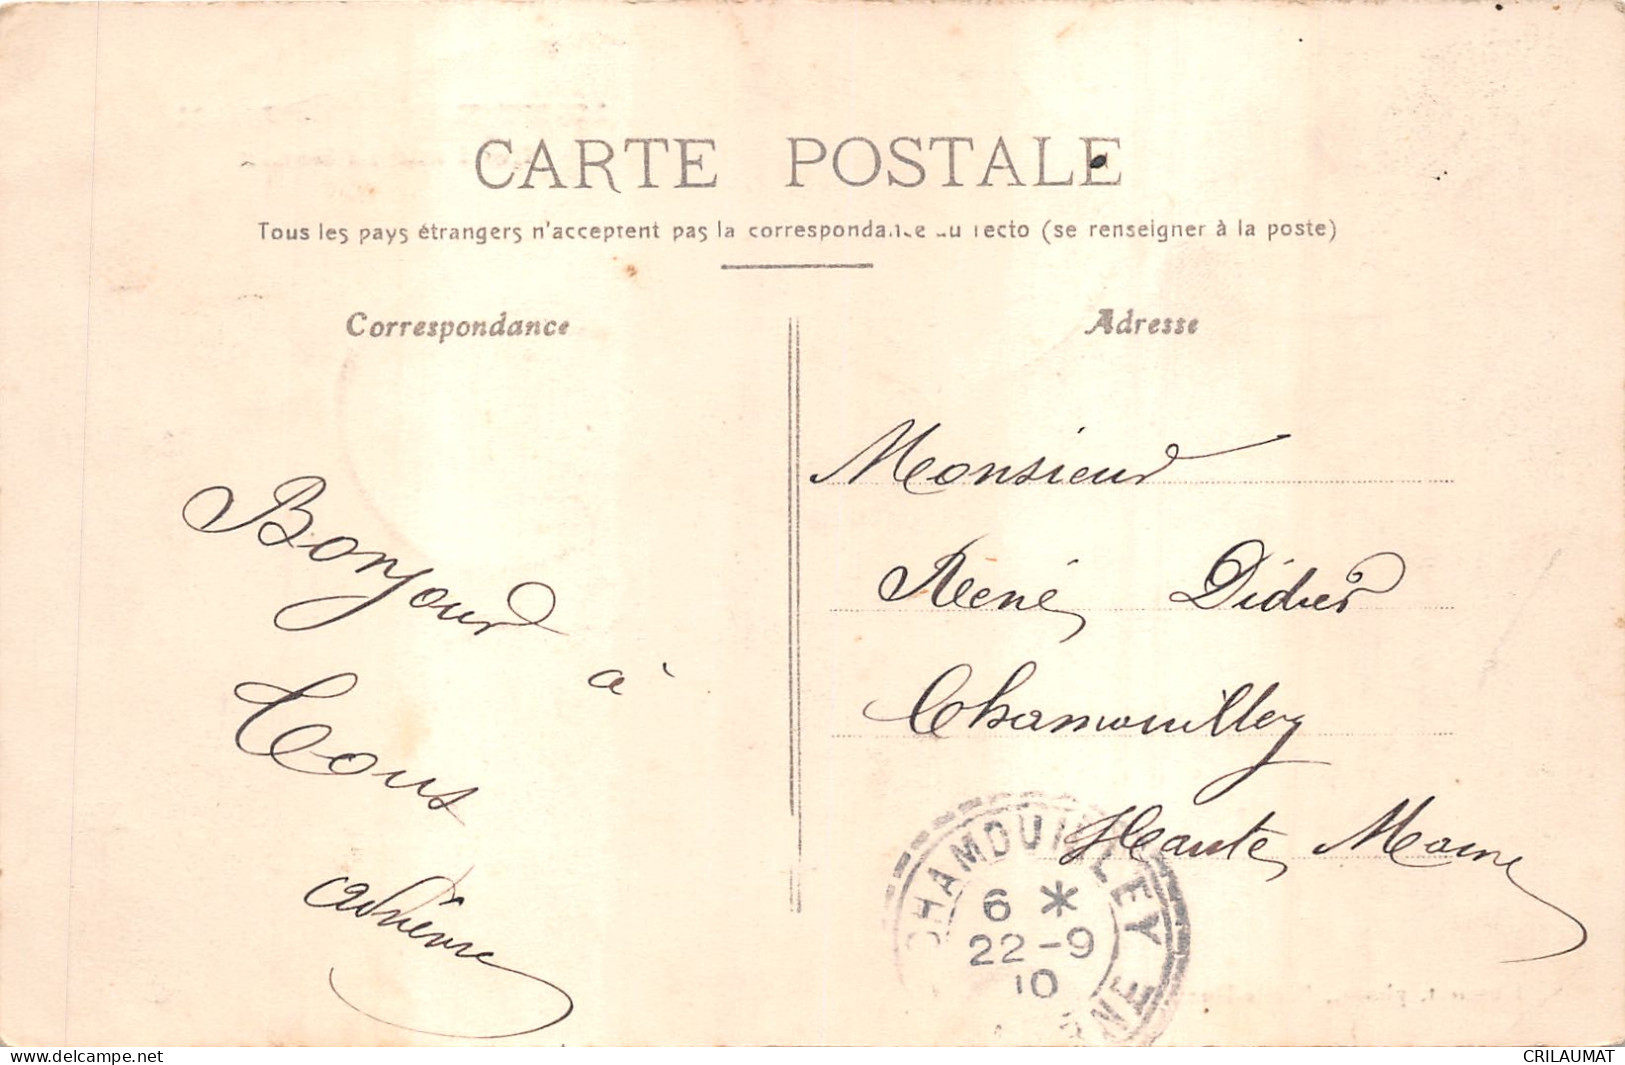 CARTE POSTALE
Tous les pays étrangers n'acceptent pas la correspondance au recto (se renseigner à la poste)
Correspondance
Adresse
Bonjour
à
Tous
Monsieur
René Didier
Chamouilley
Haute Marne
CHAMOUILLEY
6 *
22-9
10
RNE
www.delcampe.net
CRILAUMAT